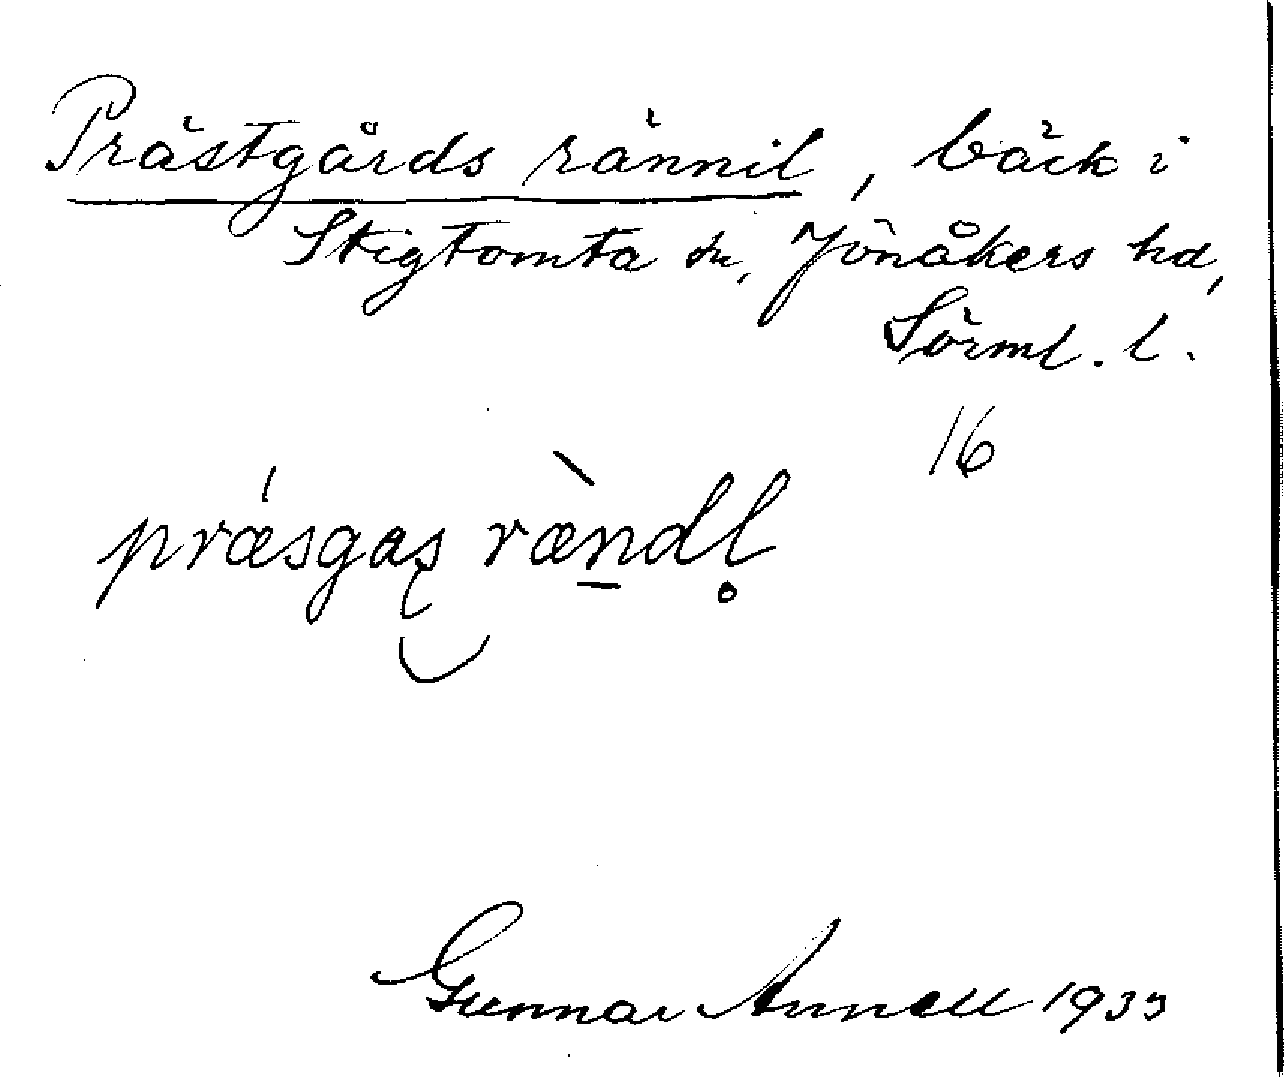 Prästgårds rännil, bäck i
Stigtomta sn, Jönåkers hd,
Sörml. l.
16
præsgaʂ rændl̥
Gunnar Annell 1935